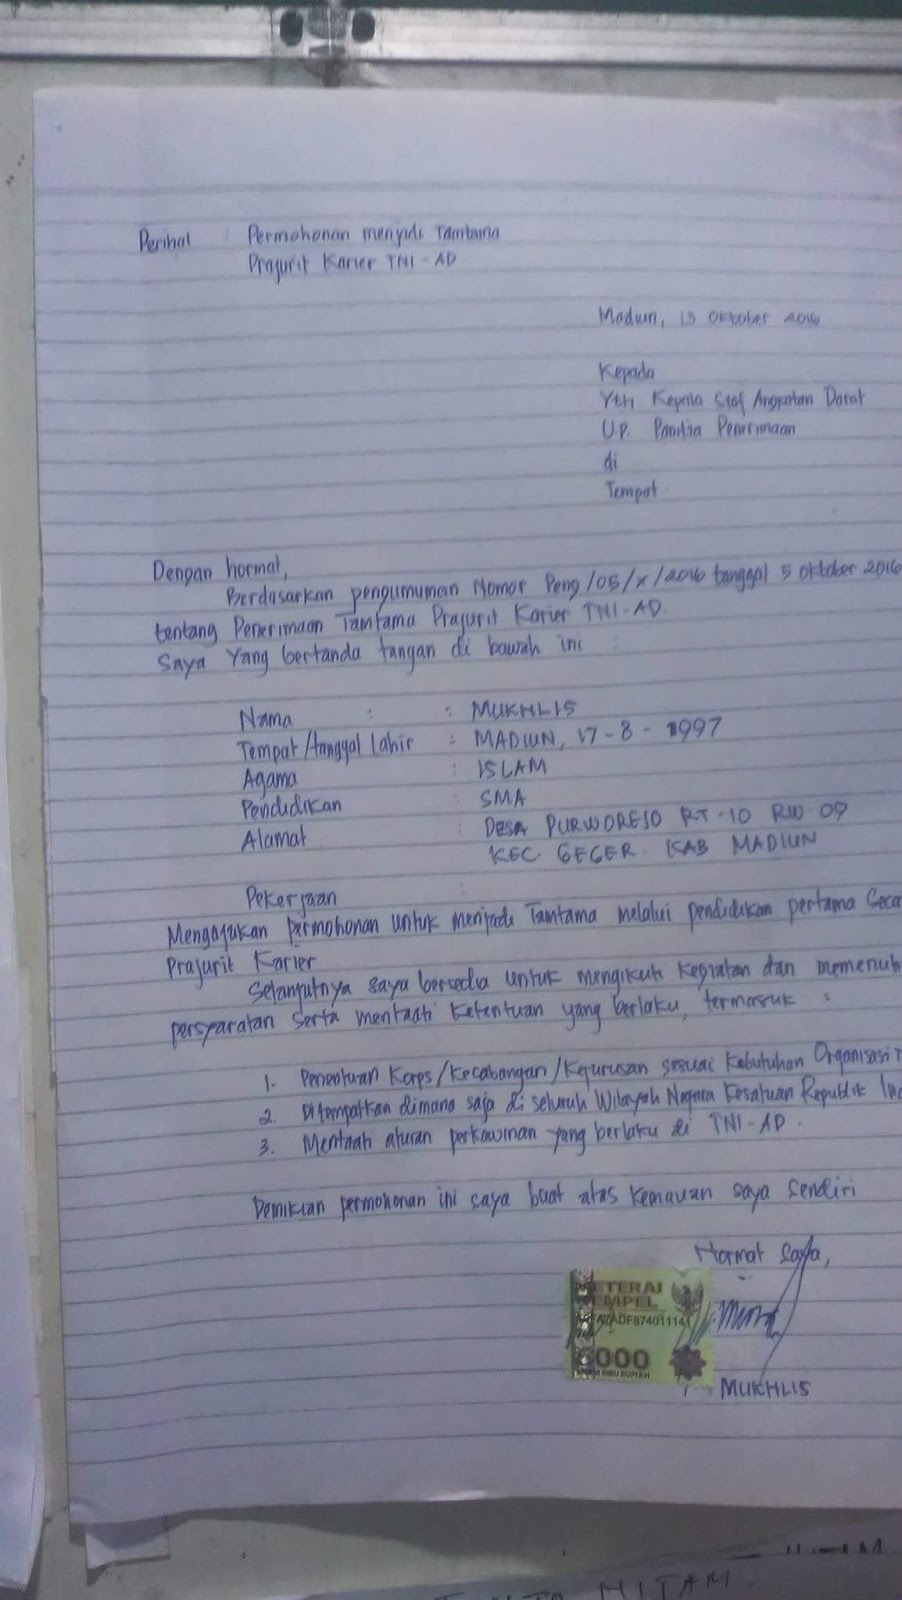 Perihal : Permohonan menjadi Tamtama
Prajurit Karier TNI-AD
Madiun, 13 Oktober 2016
Kepada
Yth Kepala Staf Angkatan Darat
U.P. Panitia Penerimaan
di
Tempat
Dengan hormat,
Berdasarkan pengumuman Nomor Peng/05/X/2016 tanggal 5 oktober 2016
tentang Penerimaan Tamtama Prajurit Karier TNI-AD.
Saya Yang bertanda tangan di bawah ini :
Nama : : MUKHLIS
Tempat/tanggal lahir : MADIUN, 17-8-1997
Agama : ISLAM
Pendidikan : SMA
Alamat : DESA PURWOREJO RT.10 RW 09
KEC. GEGER. KAB MADIUN
Pekerjaan :
Mengajukan permohonan untuk menjadi Tamtama melalui pendidikan pertama Seca
Prajurit Karier
Selanjutnya saya bersedia untuk mengikuti kegiatan dan memenuh
persyaratan serta mentaati Ketentuan yang berlaku, termasuk :
1. Penentuan Korps/Kecabangan/Kejurusan sesuai Kebutuhan Organisasi T
2. Ditempatkan dimana saja di seluruh Wilayah Negara Kesatuan Republik Ind
3. Mentaati aturan perkawinan yang berlaku di TNI-AD.
Demikian permohonan ini saya buat atas kemauan saya sendiri
Hormat Saya,
METERAI
TEMPEL
ADF874011141
6000
ENAM RIBU RUPIAH
MUKHLIS
HITAM